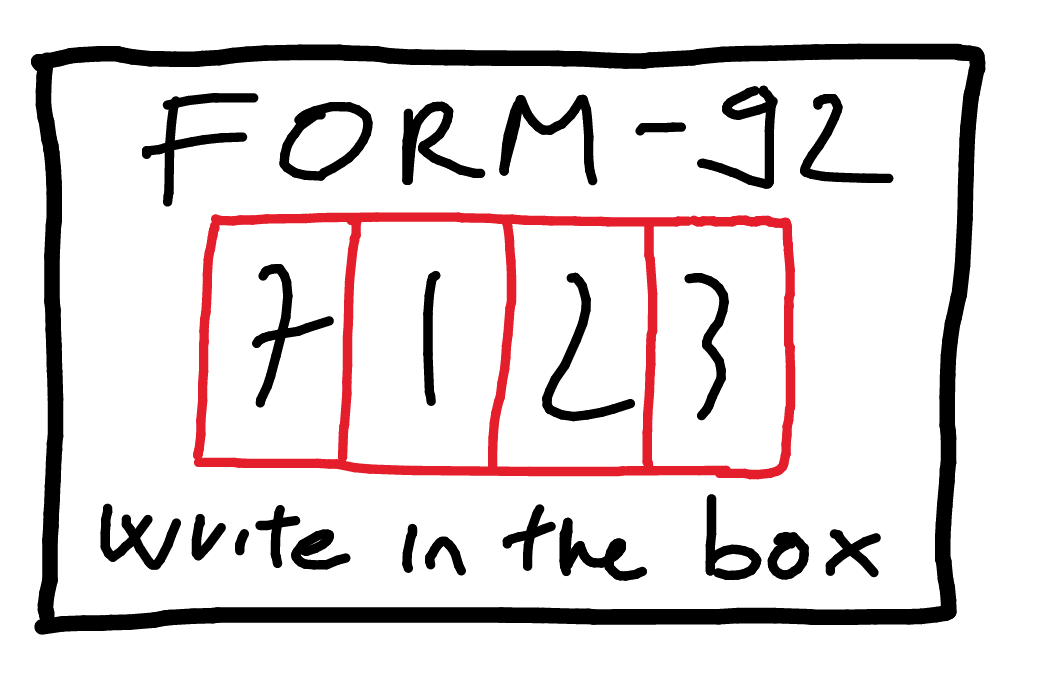 FORM-92
7123
write in the box